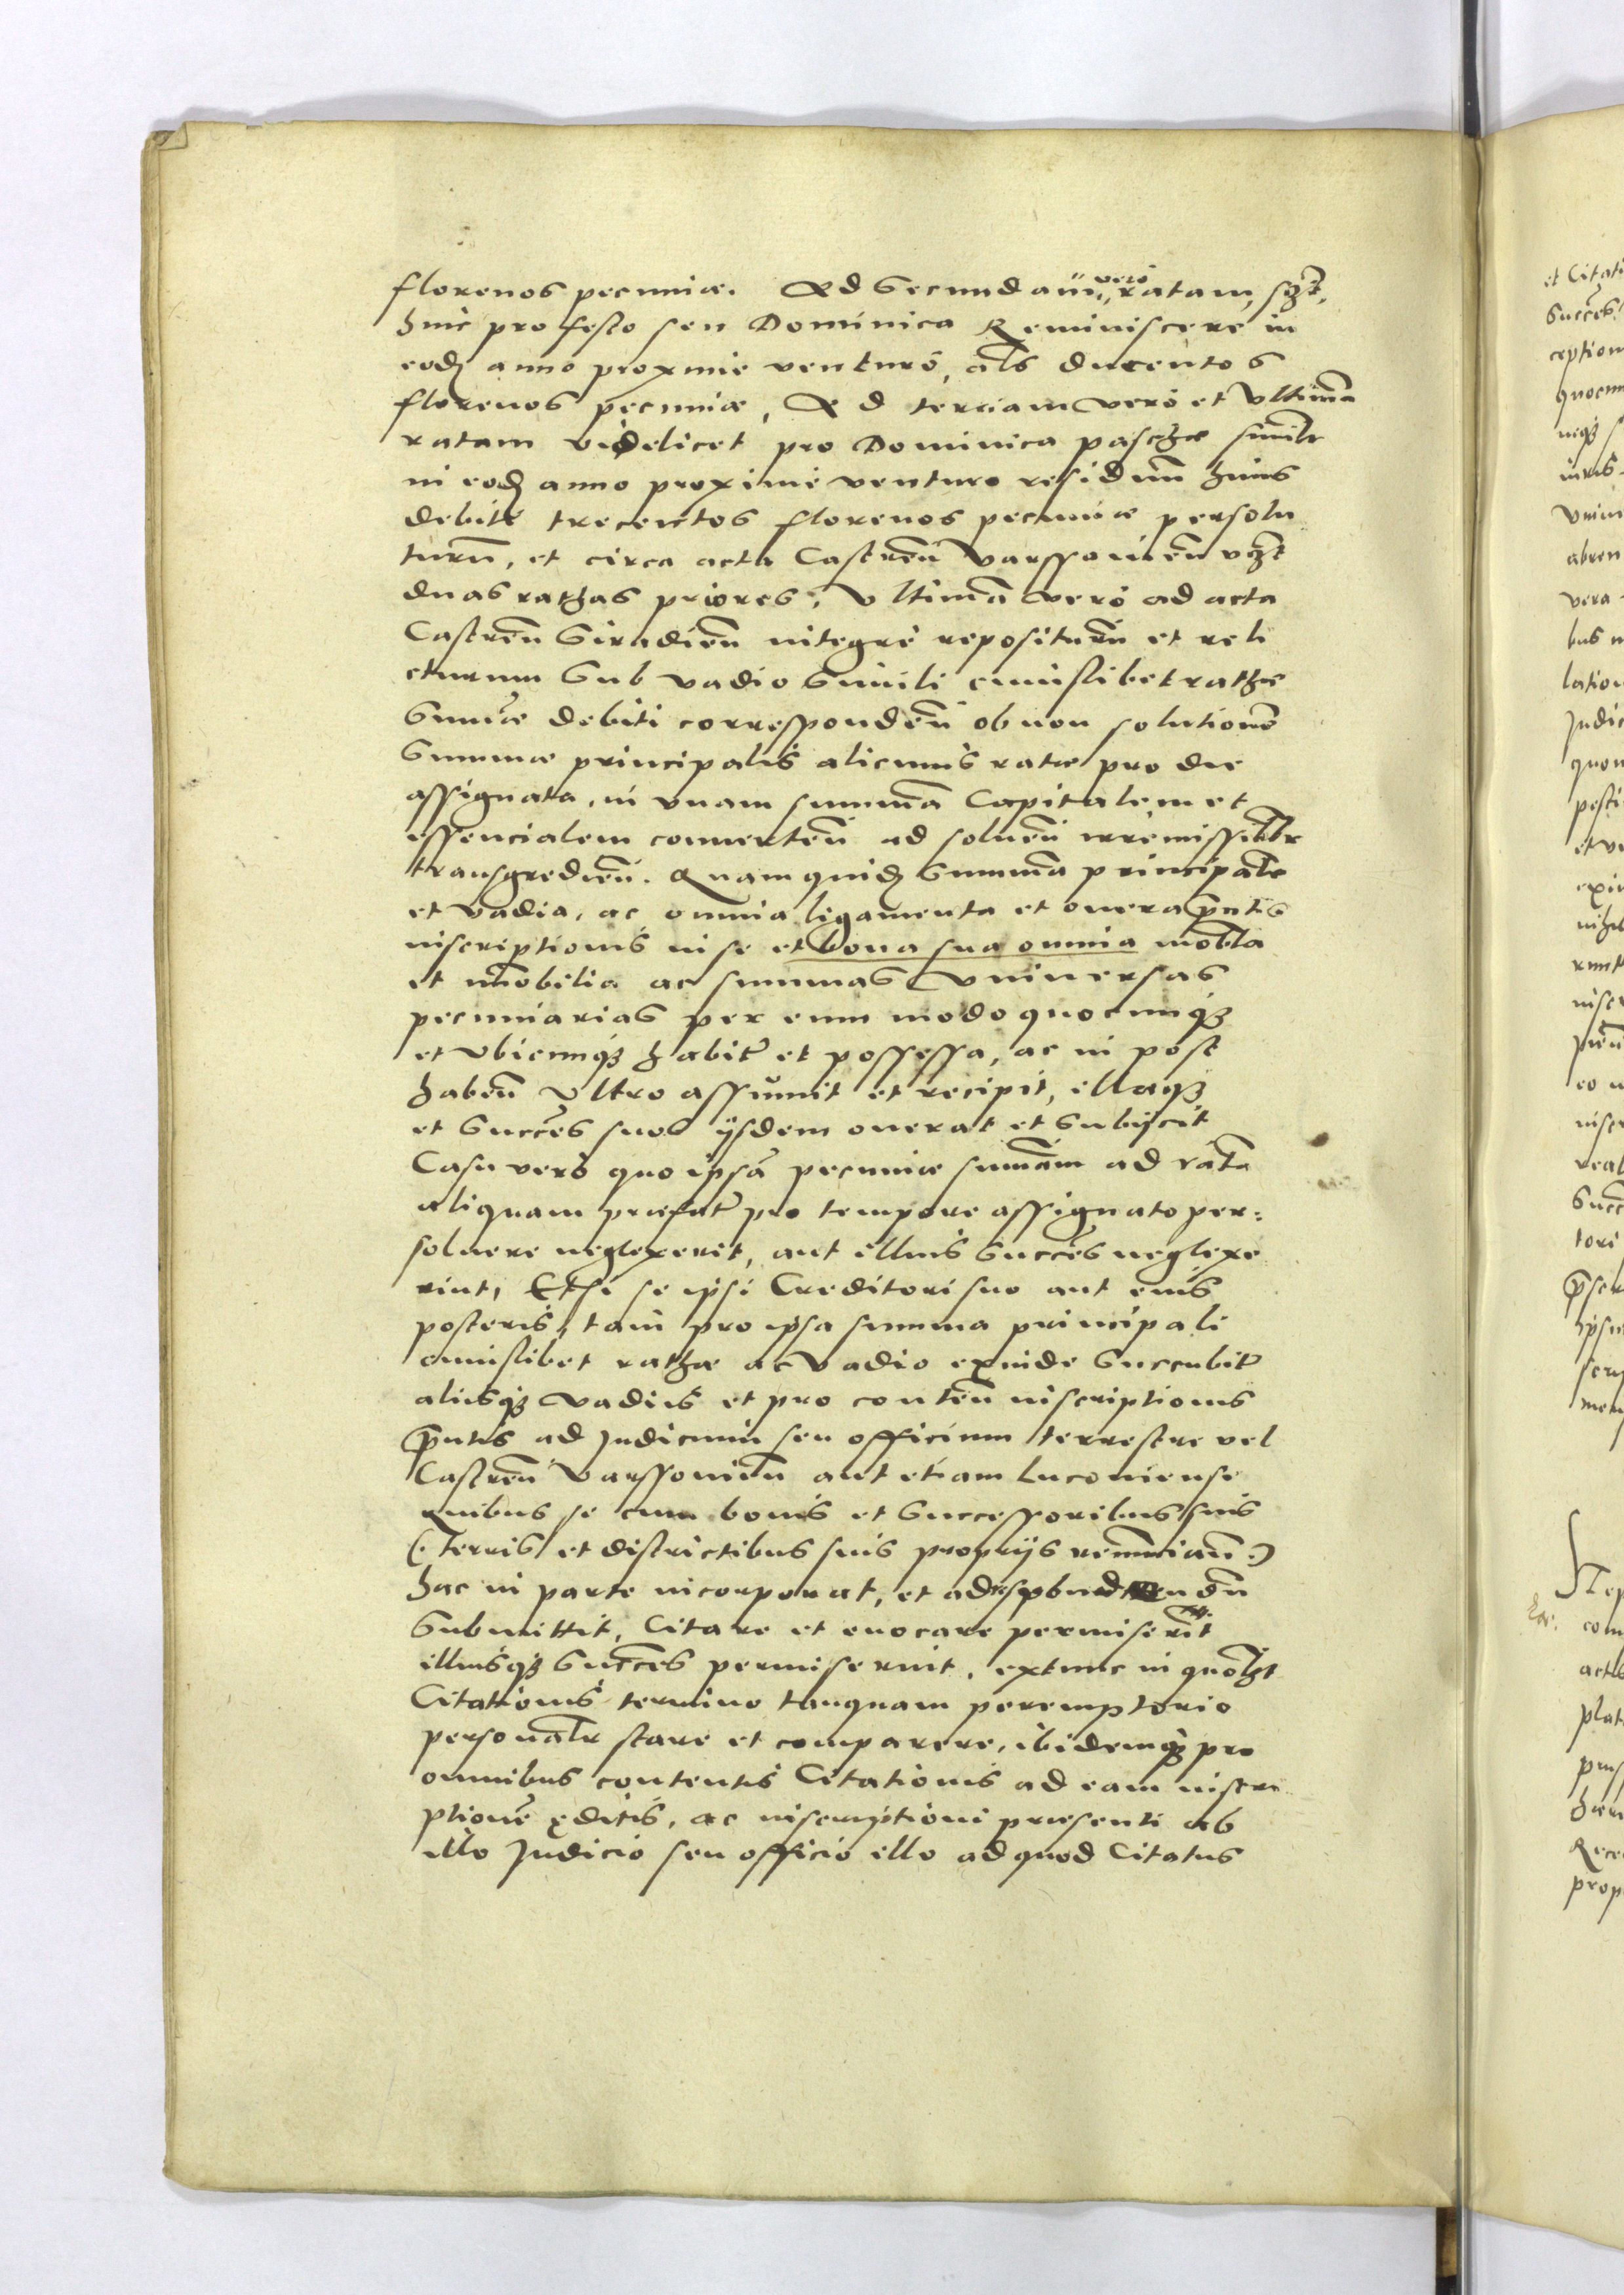 florenos pecuniæ. Ad Secundam vero ratam, szt,
hinc pro festo seu Dominica Reminiscere in
eodꝫ anno proxime venturo, als ducentos
florenos pecuniæ, Ad terciam vero et Vltimā
ratam videlicet pro Dominica paschæ similr
in eodꝫ anno proxime venturo residuū huius
debiti trecentos florenos pecuniæ persolu
turū, et circa acta Castreñ Varssovieñ vzt
duas rathas priores, Vltimā vero ad acta
Castreñ Siradieñ integre repositurū et reli
cturum Sub vadio Simili cuiuslibet rathæ
Summæ debiti correspondeñ ob non solutionē
Summæ principalis alicuius ratæ pro die
assignata, in vnam summā Capitalem et
essencialem converteñ ad solueñ irremissiblr
transgredieñ. Quam quidꝫ Summā principalē
et vadia, ac omnia ligamenta et onera pn̄tis
inscriptionis in se et bona sua omnia mobīla
et im̄obilia ac summas Vniversas
pecuniarias per eum modo quocunqꝫ
et vbicunqꝫ habitꝰ et possessa, ac in post
habeñ Vltro assumit et recipit, illaqꝫ
et Succēs suos ijsdem onerat et Subijcit
Casu vero quo ipsā pecuniæ sum̄am ad ratā
aliquam præfatꝰ pro tempore assignato per:
soluere neglexerit, aut illius Succēs neglexe
rint, Etsi se ipsi Creditori suo aut eius
posteris, tam pro ipsa summa principali
cuiuslibet rathæ ac Vadio exinde Succubitꝰ
alijsqꝫ vadijs et pro conteñ inscriptionis
pn̄tis ad Judicium seu officium terrestre vel
Castreñ Varssovieñ aut etiam Lucoviense
Quibus se cum bonis et Successoribus suis
(: terris et districtibus suis proprijs renunciañ :)
hac in parte incorporat, et ad respondendū
Submittit, Citare et evocare permiserit
illiusqꝫ Succēs permisserint, extunc in quolzt
Citationis termino tanquam peremptorio
personalr stare et comparere, ibidemqꝫ pro
omnibus contentis Citationis ad eam inscri
ptionē editis, ac inscriptioni præsenti ab
illo Judicio seu officio illo ad quod Citatus